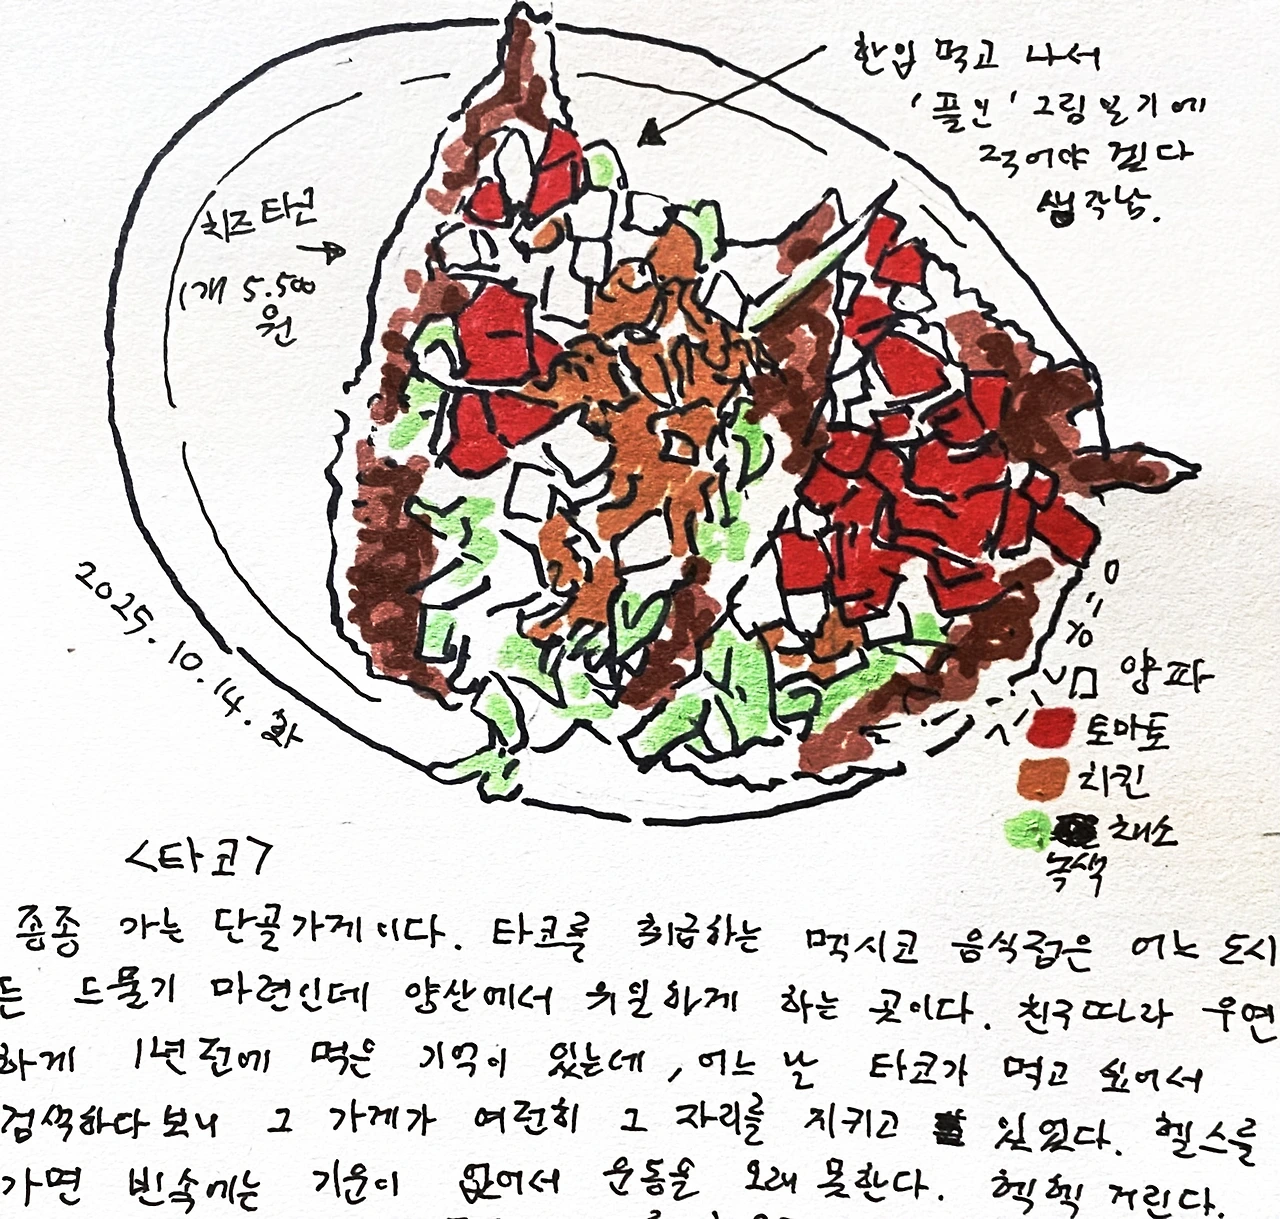 한입 먹고 나서
'플인' 그림일기에
적어야 겠다
생각남.
치즈타코
1개 5.500
원
2025.10.14.화
양파
토마토
치킨
채소
녹색
<타코>
종종 가는 단골가게이다. 타코를 취급하는 멕시코 음식점은 어느 도시
든 드물기 마련인데 양산에서 유일하게 하는 곳이다. 친구따라 우연
하게 1년전에 먹은 기억이 있는데, 어느 날 타코가 먹고 싶어서
검색하다보니 그 가게가 여전히 그 자리를 지키고 있었다. 헬스를
가면 빈속에는 기운이 없어서 운동을 오래 못한다. 헥헥 거린다.